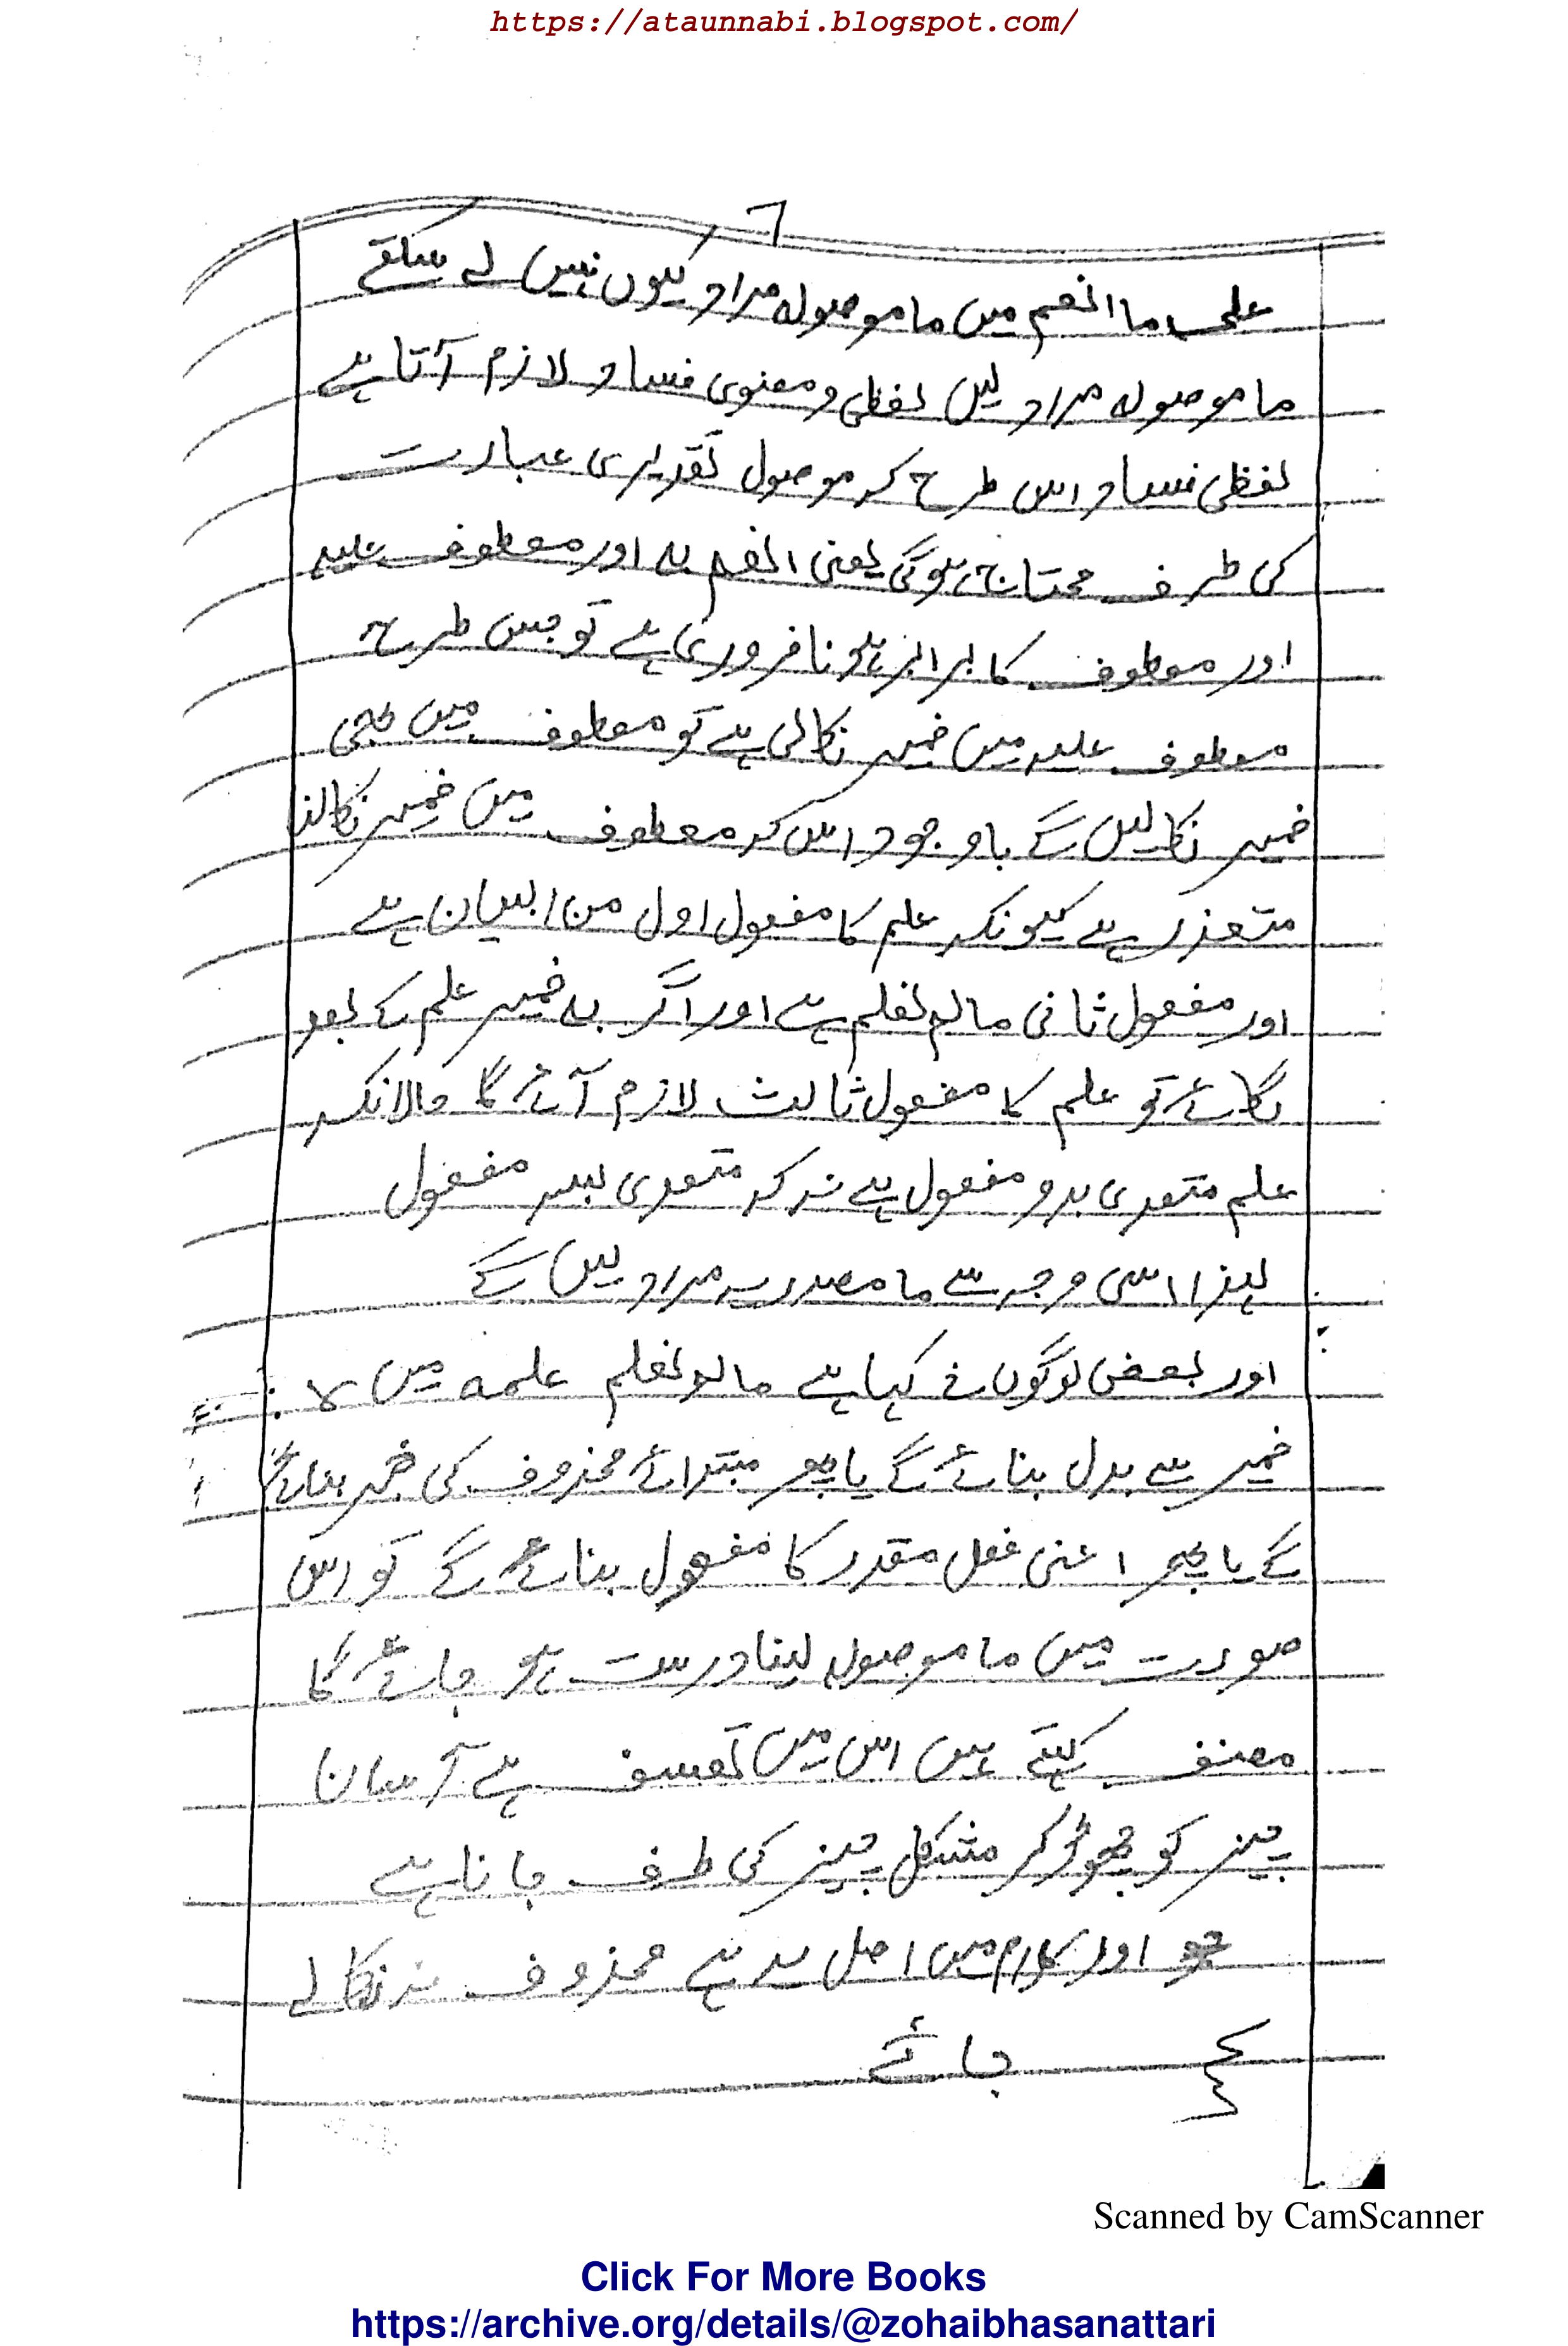 https://ataunnabi.blogspot.com/
٦
علی ما انعم میں ما موصولہ مراد کیوں نہیں لے سکتے
ما موصولہ مراد لیں لفظی و معنوی فساد لازم آتا ہے
لفظی فساد اس طرح کہ موصول تقدیری عبارت
کی طرف محتاج ہوگی یعنی انعم بہ اور معطوف علیہ
اور معطوف کا برابر ہونا ضروری ہے تو جس طرح
معطوف علیہ میں ضمیر نکالی ہے تو معطوف میں بھی
ضمیر نکالیں گے باوجود اس کہ معطوف میں ضمیر نکالنا
متعذر ہے کیونکہ علم کا مفعول اول من البیان ہے
اور مفعول ثانی مالم نعلم ہے اور اگر بہ ضمیر علم کے بعد
لگائے تو علم کا مفعول ثالث لازم آئے گا حالانکہ
علم متعدی بدو مفعول ہے نہ کہ متعدی بسہ مفعول
لہذا اسی وجہ سے ما مصدریہ مراد لیں گے
اور بعض لوگوں نے کہا ہے مالم نعلم علمہ میں ہ
ضمیر سے بدل بنائے گے یا پھر مبتدائے محذوف کی خبر بنائے
گے یا پھر اعنی فعل مقدر کا مفعول بنائے گے تو اس
صورت میں ما موصولہ لینا درست ہو جائے گا
مصنف کہتے ہیں اس میں تعسف ہے آسان
چیز کو چھوڑ کر مشکل چیز کی طرف جانا ہے
اور کلام میں اصل یہ ہے محذوف نہ نکالے
جائے
Scanned by CamScanner
Click For More Books
https://archive.org/details/@zohaibhasanattari